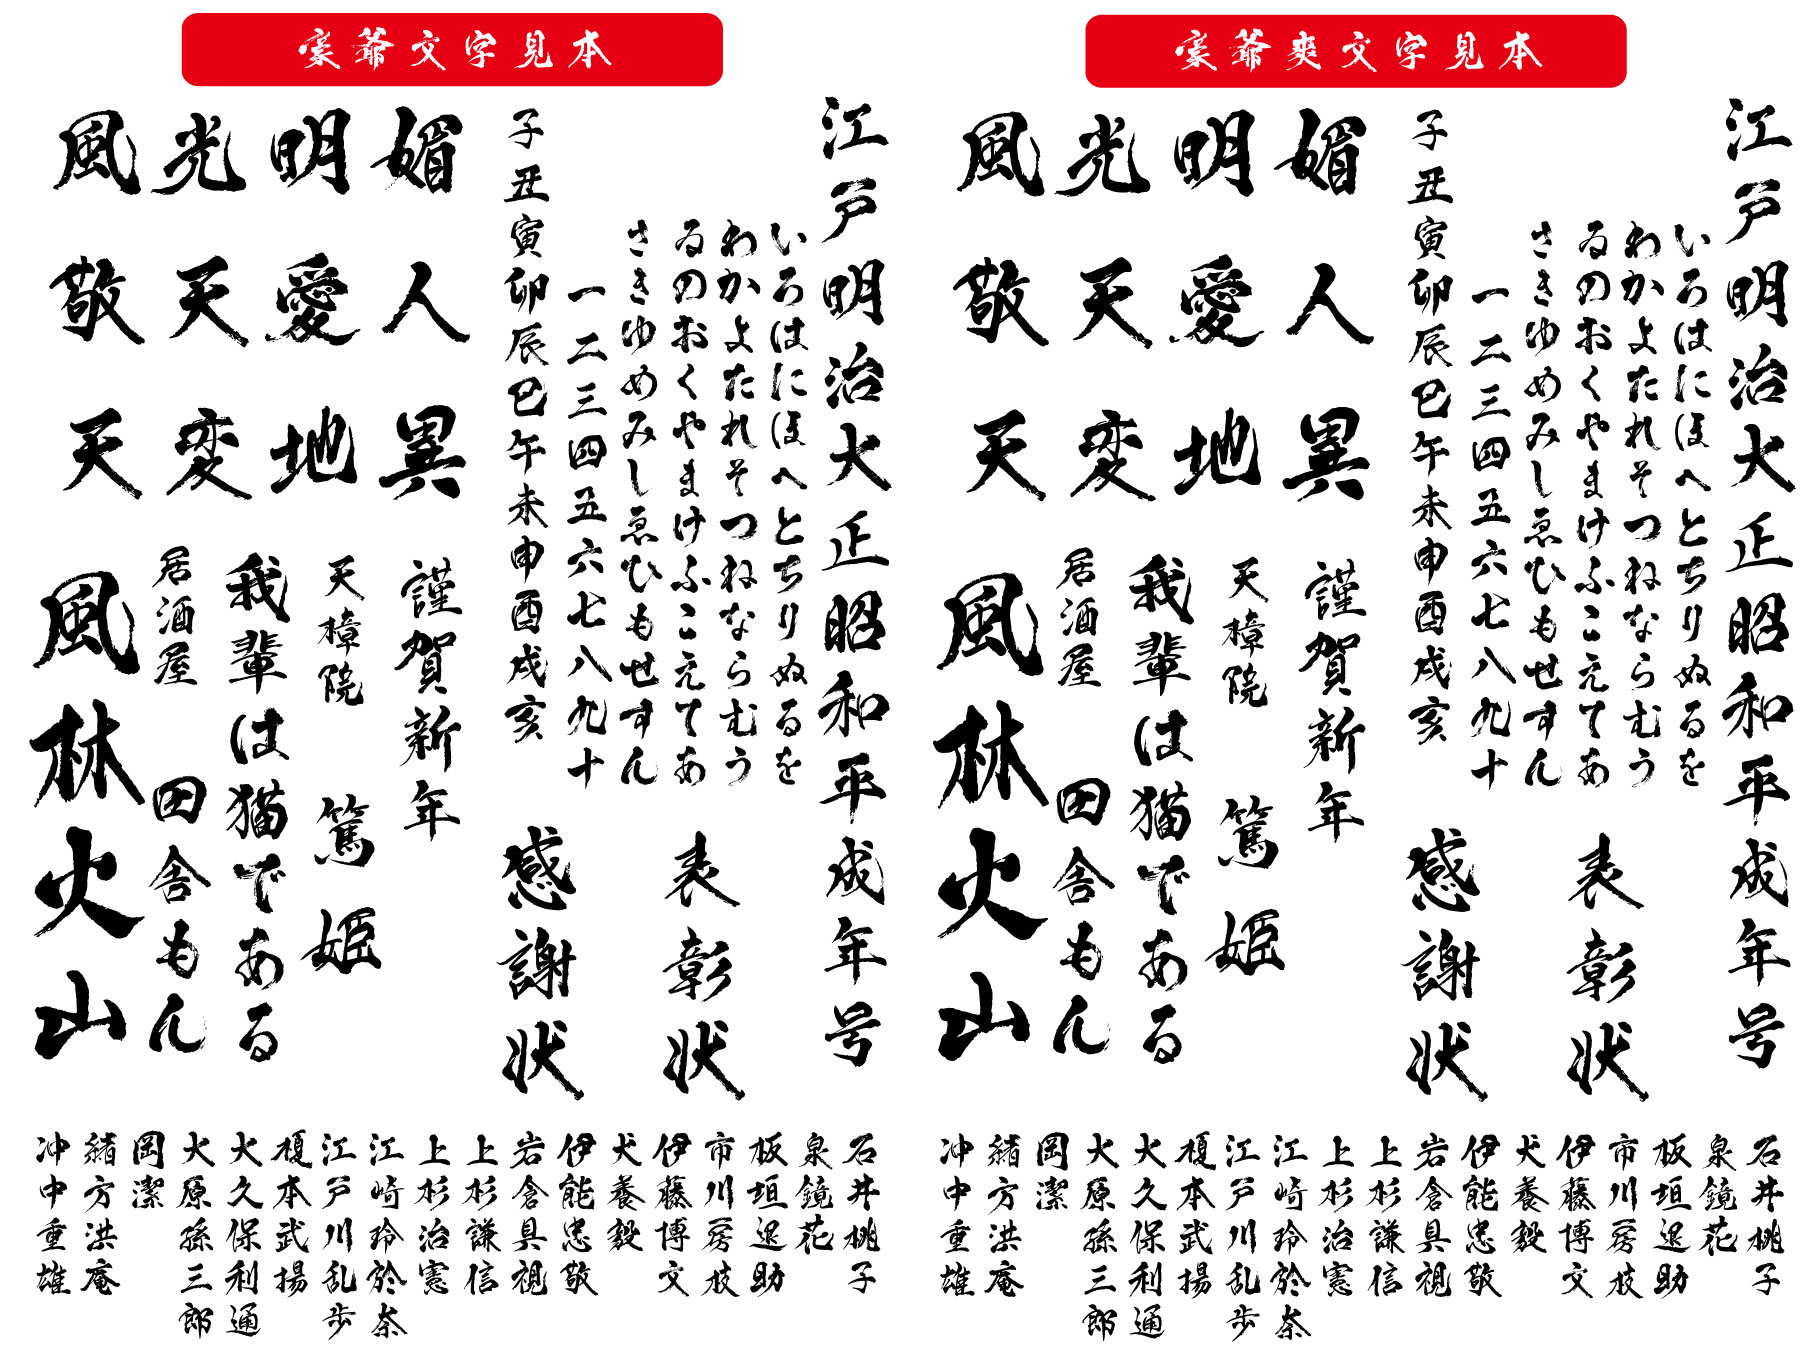 豪爺文字見本
江戸明治大正昭和平成年号
いろはにほへとちりぬるを
わかよたれそつねならむう
ゐのおくやまけふこえてあ
さきゆめみしゑひもせすん
一二三四五六七八九十
子丑寅卯辰巳午未申酉戌亥
風光明媚
敬天愛人
天変地異
表彰状
感謝状
謹賀新年
天樟院
篤姫
我輩は猫である
居酒屋
田舎もん
風林火山
石井桃子
泉鏡花
板垣退助
市川房枝
伊藤博文
犬養毅
伊能忠敬
岩倉具視
上杉謙信
上杉治憲
江崎玲於奈
江戸川乱歩
榎本武揚
大久保利通
大原孫三郎
岡潔
緒方洪庵
沖中重雄
豪爺爽文字見本
江戸明治大正昭和平成年号
いろはにほへとちりぬるを
わかよたれそつねならむう
ゐのおくやまけふこえてあ
さきゆめみしゑひもせすん
一二三四五六七八九十
子丑寅卯辰巳午未申酉戌亥
風光明媚
敬天愛人
天変地異
表彰状
感謝状
謹賀新年
天樟院
篤姫
我輩は猫である
居酒屋
田舎もん
風林火山
石井桃子
泉鏡花
板垣退助
市川房枝
伊藤博文
犬養毅
伊能忠敬
岩倉具視
上杉謙信
上杉治憲
江崎玲於奈
江戸川乱歩
榎本武揚
大久保利通
大原孫三郎
岡潔
緒方洪庵
沖中重雄